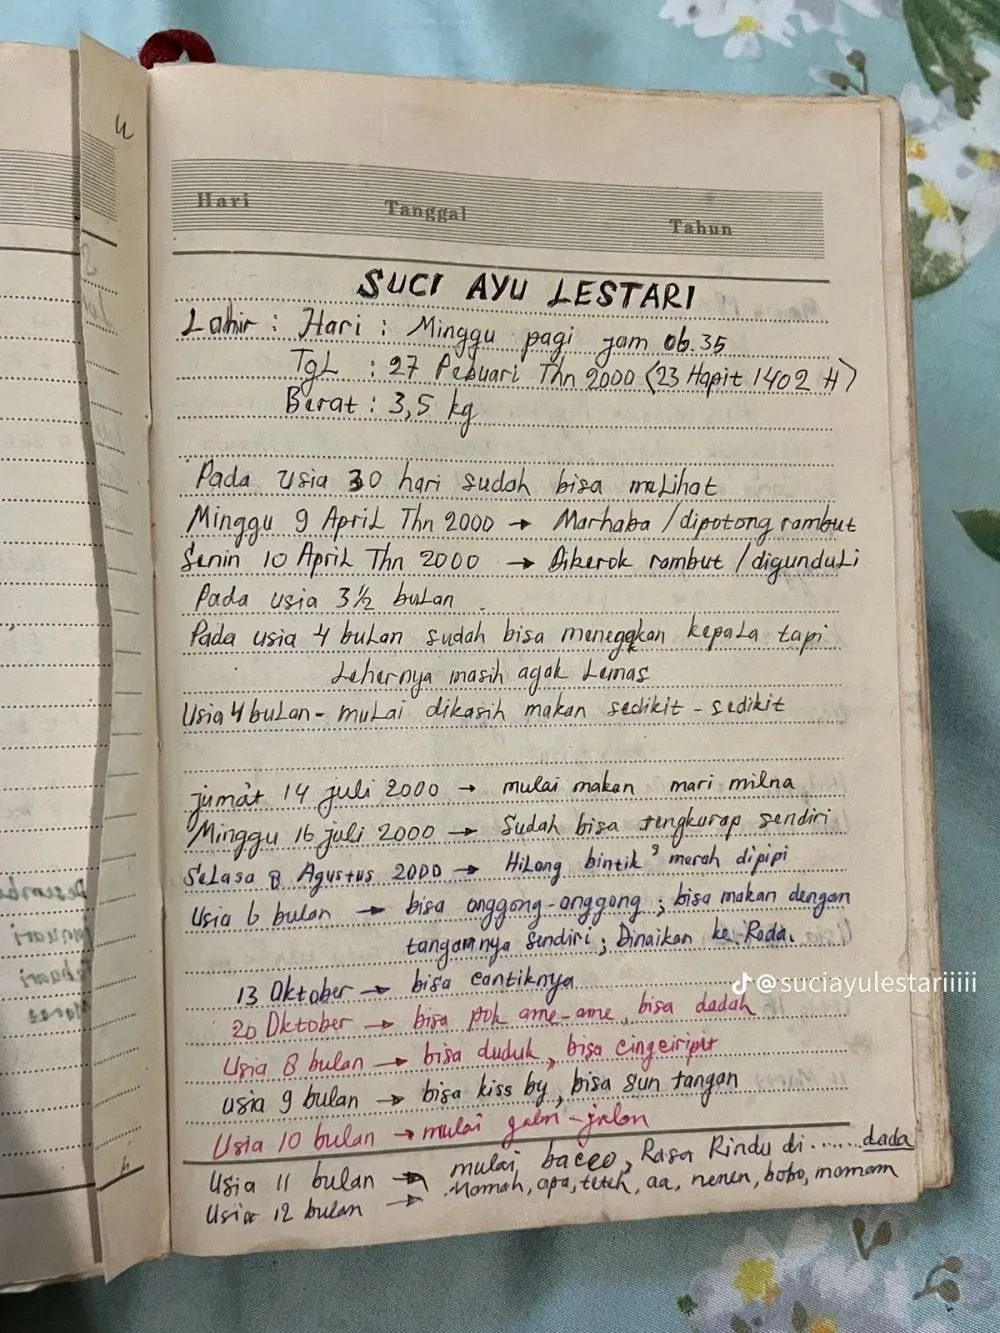 Hari Tanggal Tahun
SUCI AYU LESTARI
Lahir : Hari : Minggu pagi jam 06.35
TgL : 27 Pebuari Thn 2000 (23 Hapit 1402 H)
Berat : 3,5 kg
Pada usia 30 hari sudah bisa meLihat
Minggu 9 ApriL Thn 2000 → Marhaba / dipotong rambut
Senin 10 ApriL Thn 2000 → Dikerok rambut / digunduLi
Pada usia 3½ buLan
Pada usia 4 buLan sudah bisa menegakan kepaLa tapi
Lehernya masih agak Lemas
Usia 4 buLan - muLai dikasih makan sedikit - sedikit
jumat 14 juli 2000 → mulai makan mari milna
Minggu 16 juli 2000 → Sudah bisa tengkurap sendiri
SeLasa 8 Agustus 2000 → HiLang bintik² merah dipipi
Usia 6 bulan → bisa anggong-anggong ; bisa makan dengan
tangannya sendiri ; Dinaikan ke Roda.
13 Oktober → bisa cantiknya
@suciayulestariiiii
20 Oktober → bisa pok ame-ame, bisa dadah
Usia 8 bulan → bisa duduk, bisa cingeiripit
usia 9 bulan → bisa kiss by, bisa sun tangan
Usia 10 bulan → mulai jalan-jalan
Usia 11 bulan → mulai baceo, Rasa Rindu di ...... dada
Usia 12 bulan → Mamah, apa, teteh, aa, nenen, bobo, mamam